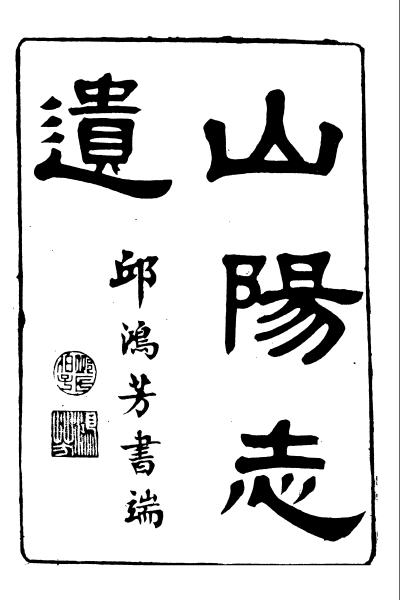 山陽志
遺
邱鴻芳書端